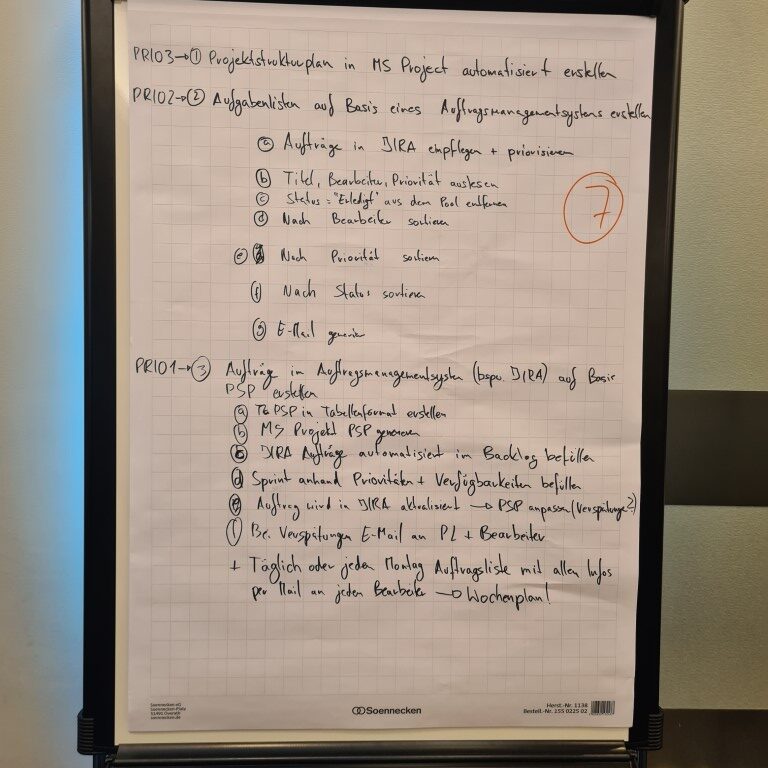 PRIO3→① Projektstrukturplan in MS Project automatisiert erstellen
PRIO2→② Aufgabenlisten auf Basis eines Auftragsmanagementsystems erstellen
ⓐ Aufträge in JIRA empflegen + priorisieren
ⓑ Titel, Bearbeiter, Priorität auslesen
ⓒ Status = "Erledigt" aus dem Pool entfernen
ⓓ Nach Bearbeiter sortieren
7
ⓔ Nach Priorität sortieren
ⓕ Nach Status sortieren
ⓖ E-Mail generieren
PRIO1→③ Aufträge im Auftragsmanagementsystem (bspw. JIRA) auf Basis
PSP erstellen
ⓐ PSP in Tabellenformat erstellen
ⓑ MS Projekt PSP generieren
ⓒ JIRA Aufträge automatisiert im Backlog befüllen
ⓓ Sprint anhand Prioritäten + Verfügbarkeiten befüllen
ⓔ Auftrag wird in JIRA aktualisiert → PSP anpassen (Verspätungen?)
ⓕ Bei Verspätungen E-Mail an PL + Bearbeiter
+ Täglich oder jeden Montag Auftragsliste mit allen Infos
per Mail an jeden Bearbeiter → Wochenplan!
Soennecken eG
Soennecken-Platz
51491 Overath
soennecken.de
Soennecken
Herst.-Nr. 1138
Bestell.-Nr. 155 0225 02